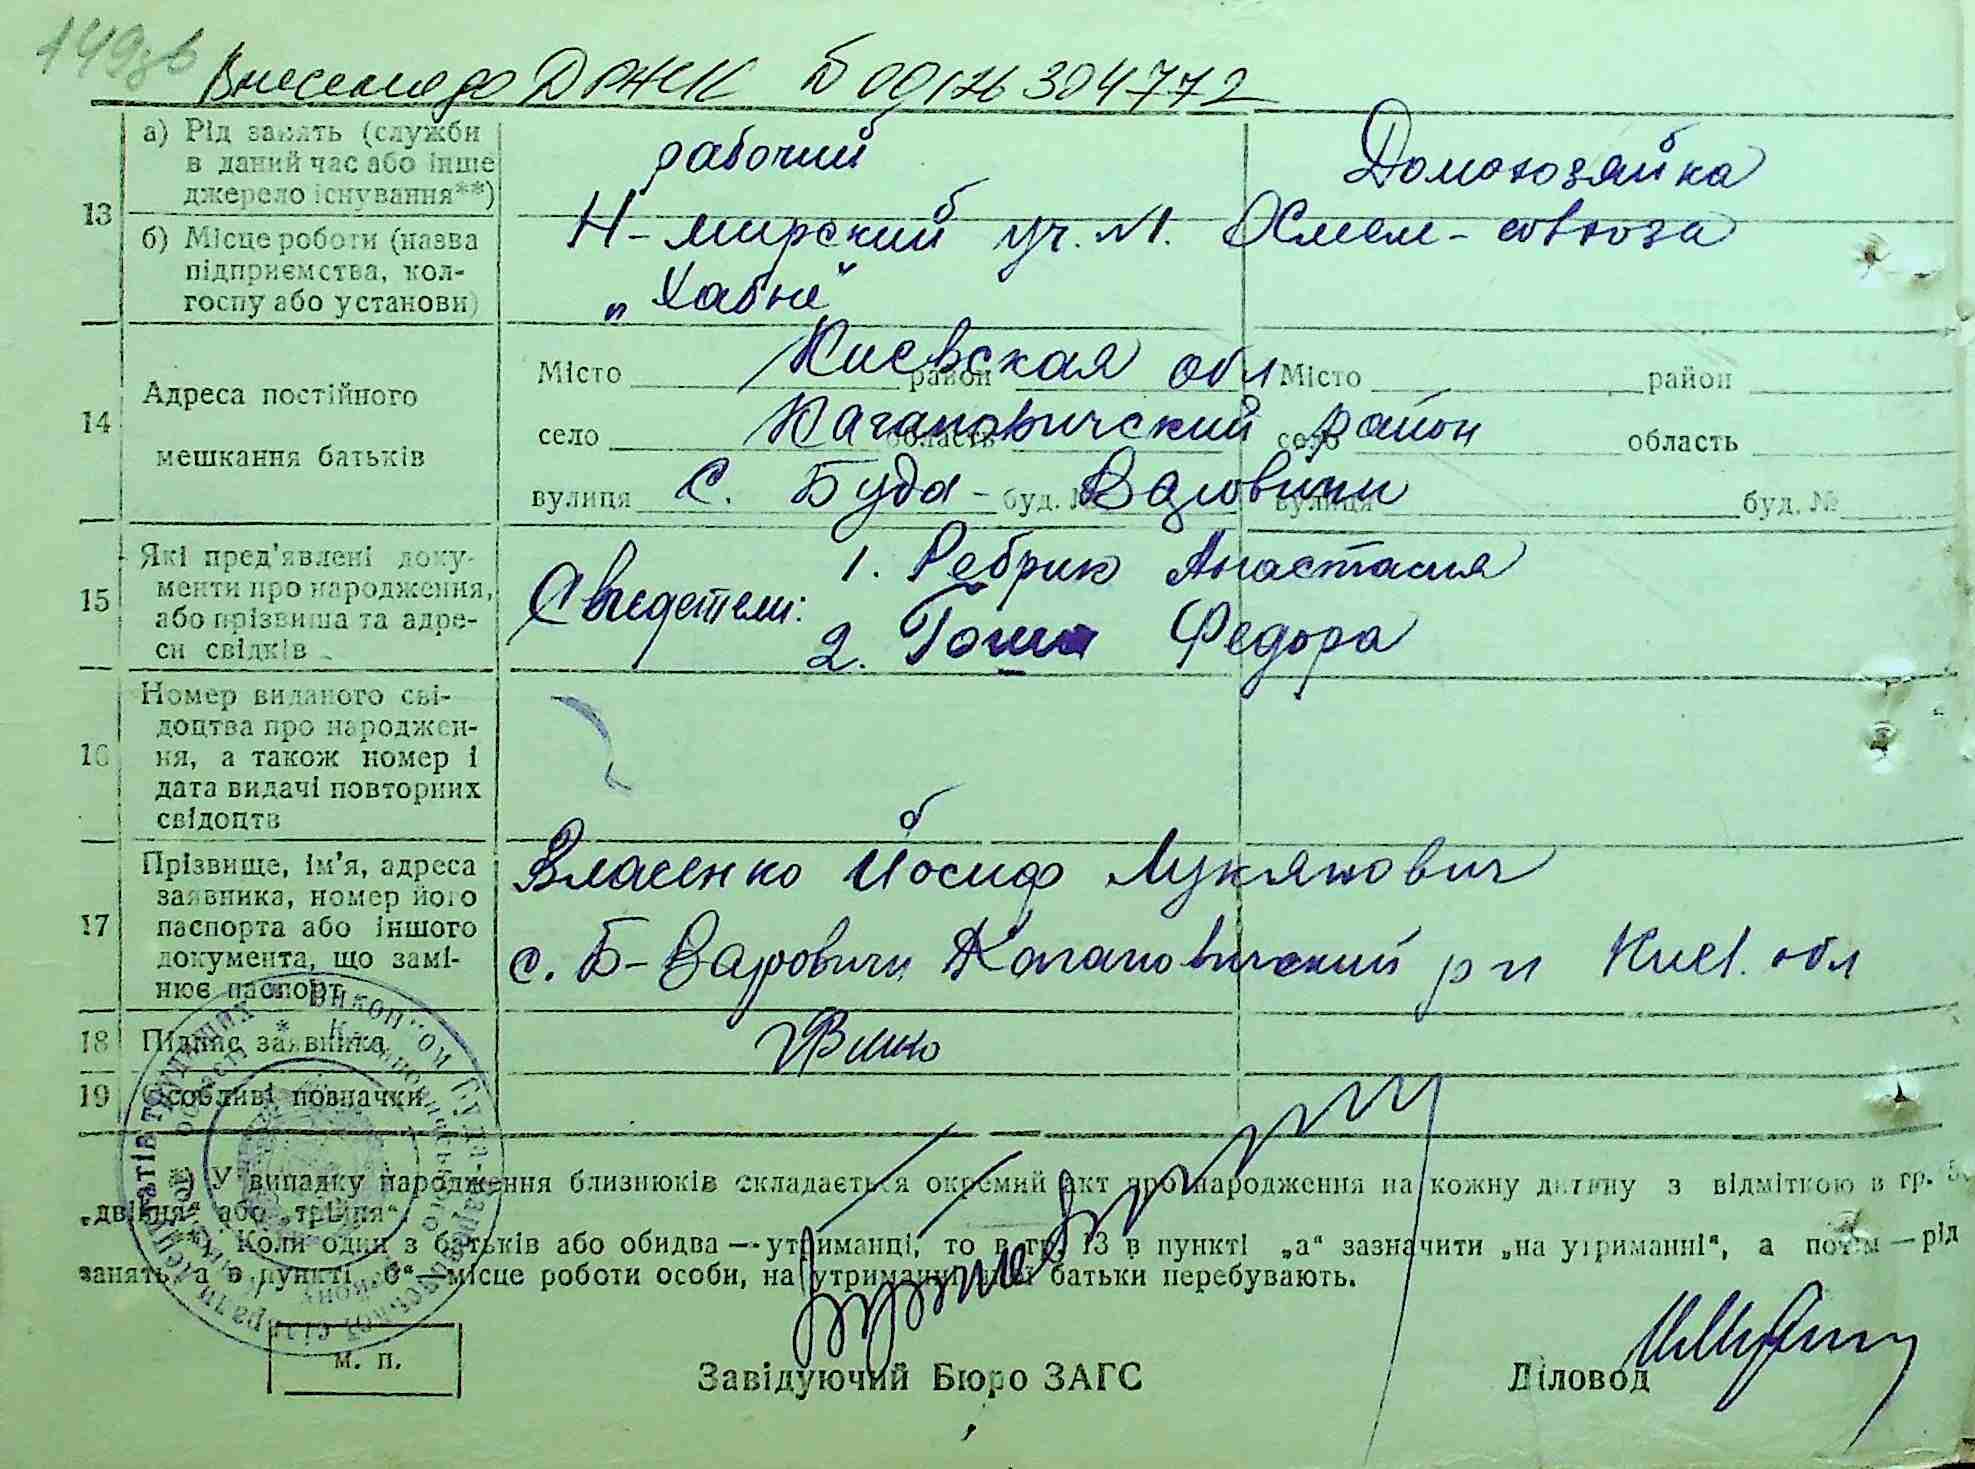 149зв
Внесено до ДРЖК
304772
13
а) Рід занять (служби в даний час або інше джерело існування**)
рабочий
Домохозяйка
б) Місце роботи (назва підприємства, колгоспу або установи)
Н-мирский уч. №1.
„Хабне"
14
Адреса постійного мешкання батьків
Місто район Місто район
Киевская обл
село область село область
Кагановичский район
вулиця буд. № вулиця буд. №
с. Буда-Варовичи
15
Які пред'явлені документи про народження, або прізвища та адреси свідків
Свидетели:
1. Ребрик Анастасия
2. Федора
16
Номер виданого свідоцтва про народження, а також номер і дата видачі повторних свідоцтв
17
Прізвище, ім'я, адреса заявника, номер його паспорта або іншого документа, що замінює паспорт
Власенко Йосиф Лукянович
с. Б-Варовичи Кагановичский р-н Киев. обл
18
Підпис заявника
19
Особливі позначки
*) У випадку народження близнюків складається окремий акт про народження на кожну дитину з відміткою в гр. 5
„двійня" або „трійня".
**) Коли один з батьків або обидва — утриманці, то в гр. 13 в пункті „а" зазначити „на утриманні", а потім — рід
занять, а в пункті „б"—місце роботи особи, на утриманні якої батьки перебувають.
м. п.
Завідуючий Бюро ЗАГС
Діловод